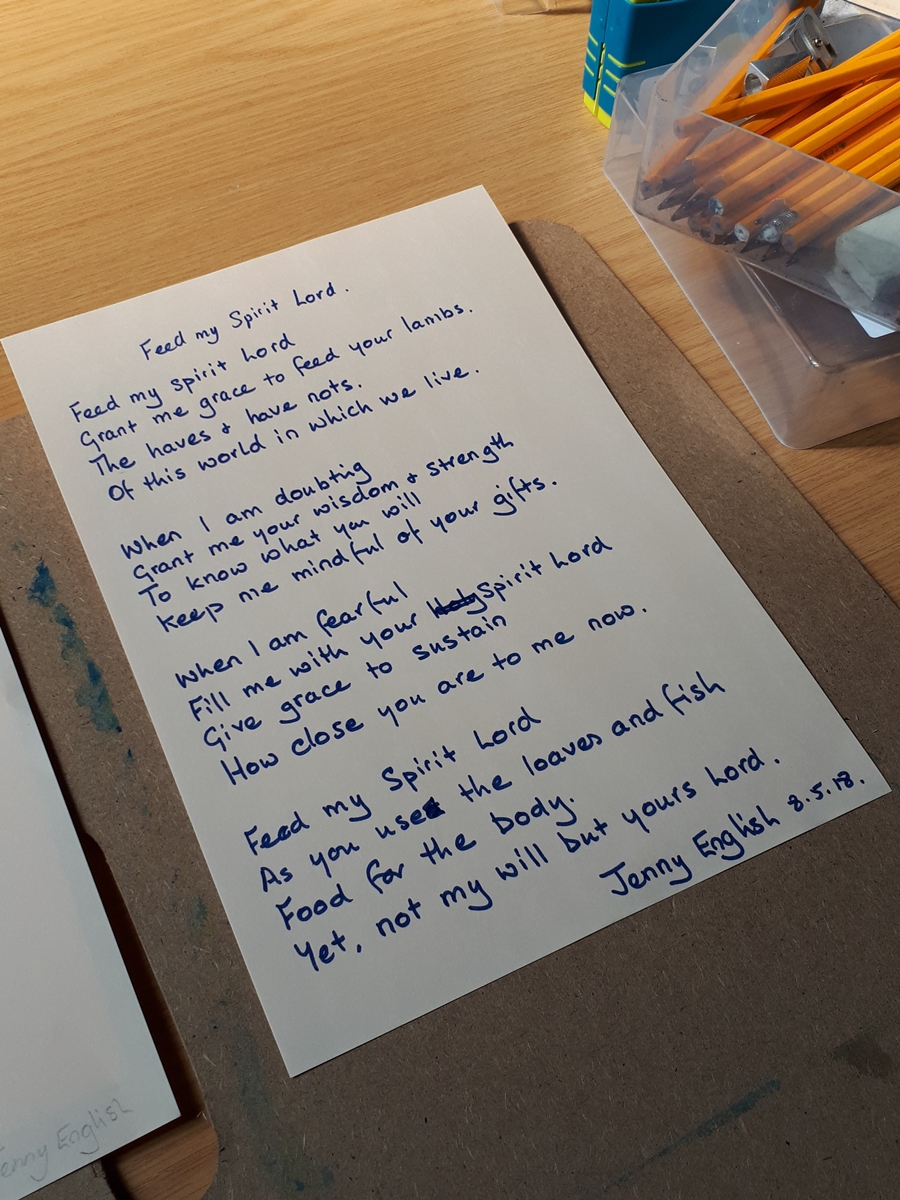 Feed my Spirit Lord.
Feed my spirit Lord
Grant me grace to feed your lambs.
The haves & have nots.
Of this world in which we live.
When I am doubtig
Grant me your wisdom & strength
To know what you will
keep me mindful of your gifts.
When I am fearful
Fill me with your Holy Spirit Lord
Give grace to sustain
How close you are to me now.
Feed my Spirit Lord
As you use the loaves and fish
Food for the body.
Yet, not my will but yours Lord.
Jenny English 8.5.18.
Jenny English